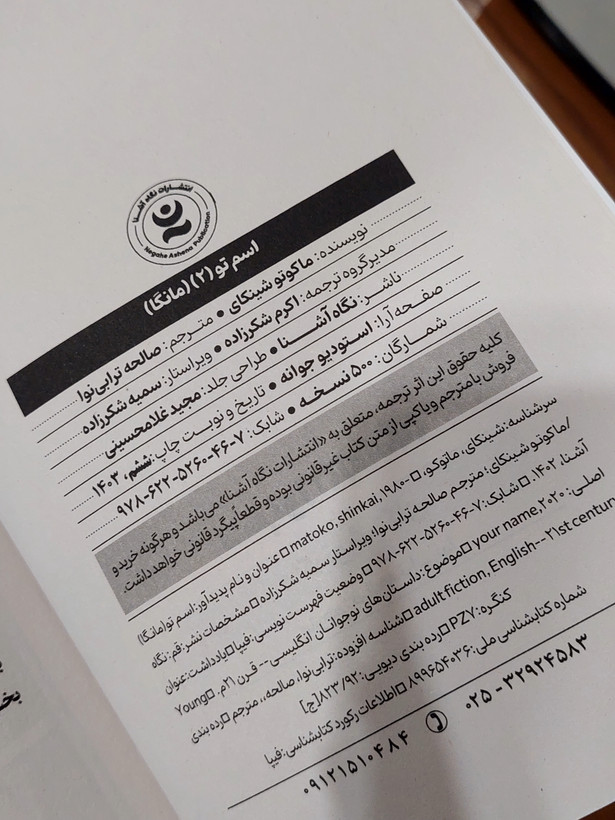 انتشارات نگاه آشنا
Negahe Ashena Publication
اسم تو (۲) (مانگا)
نویسنده: ماکوتو شینکای • مترجم: صالحه ترابی‌نوا
مدیرگروه ترجمه: اکرم شکرزاده • ویراستار: سمیه شکرزاده
ناشر: نگاه آشنا • طراحی جلد: مجید غلامحسینی
صفحه‌آرا: استودیو جوانه • تاریخ و نوبت چاپ: ششم، ۱۴۰۳
شمارگان: ۵۰۰ نسخه • شابک: ۷-۴۶-۵۲۶۰-۶۲۲-۹۷۸
کلیه حقوق این اثر ترجمه، متعلق به «انتشارات نگاه آشنا» می‌باشد و هرگونه خرید و
فروش یا مترجم و یا کپی از متن کتاب غیرقانونی بوده و قطعاً پیگرد قانونی خواهد داشت.
سرشناسه: شینکای، ماتوکو، □ -۱۹۸۰ matoko, shinkai □ عنوان و نام پدیدآور: اسم تو (مانگا)
/ماکوتو شینکای؛ مترجم صالحه ترابی‌نوا؛ ویراستار سمیه شکرزاده □ مشخصات نشر: قم: نگاه
آشنا، ۱۴۰۲. □ شابک: ۷-۴۶-۵۲۶۰-۶۲۲-۹۷۸ □ وضعیت فهرست نویسی: فیپا □ یادداشت: عنوان
اصلی: your name, ۲۰۲۰ □ موضوع: داستان‌های نوجوانان انگلیسی-- قرن ۲۱م. Young □
adult fiction, English-- ۲۱st century □ شناسه افزوده: ترابی‌نوا، صالحه،، مترجم □ رده بندی
کنگره: PZ۷ □ رده بندی دیویی: ۸۲۳/۹۲ [ج]
شماره کتابشناسی ملی: ۸۹۹۶۵۴۰۳۶ □ اطلاعات رکورد کتابشناسی: فیپا
۰۲۵ - ۳۲۹۲۴۵۸۳
۰۹۱۲۱۵۱۰۴۸۴